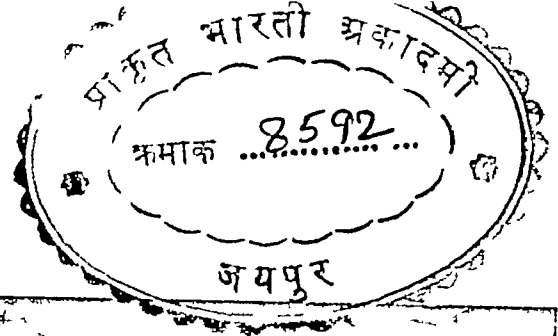 प्राकृत भारती अकादमी
क्रमाक 8592
जयपुर